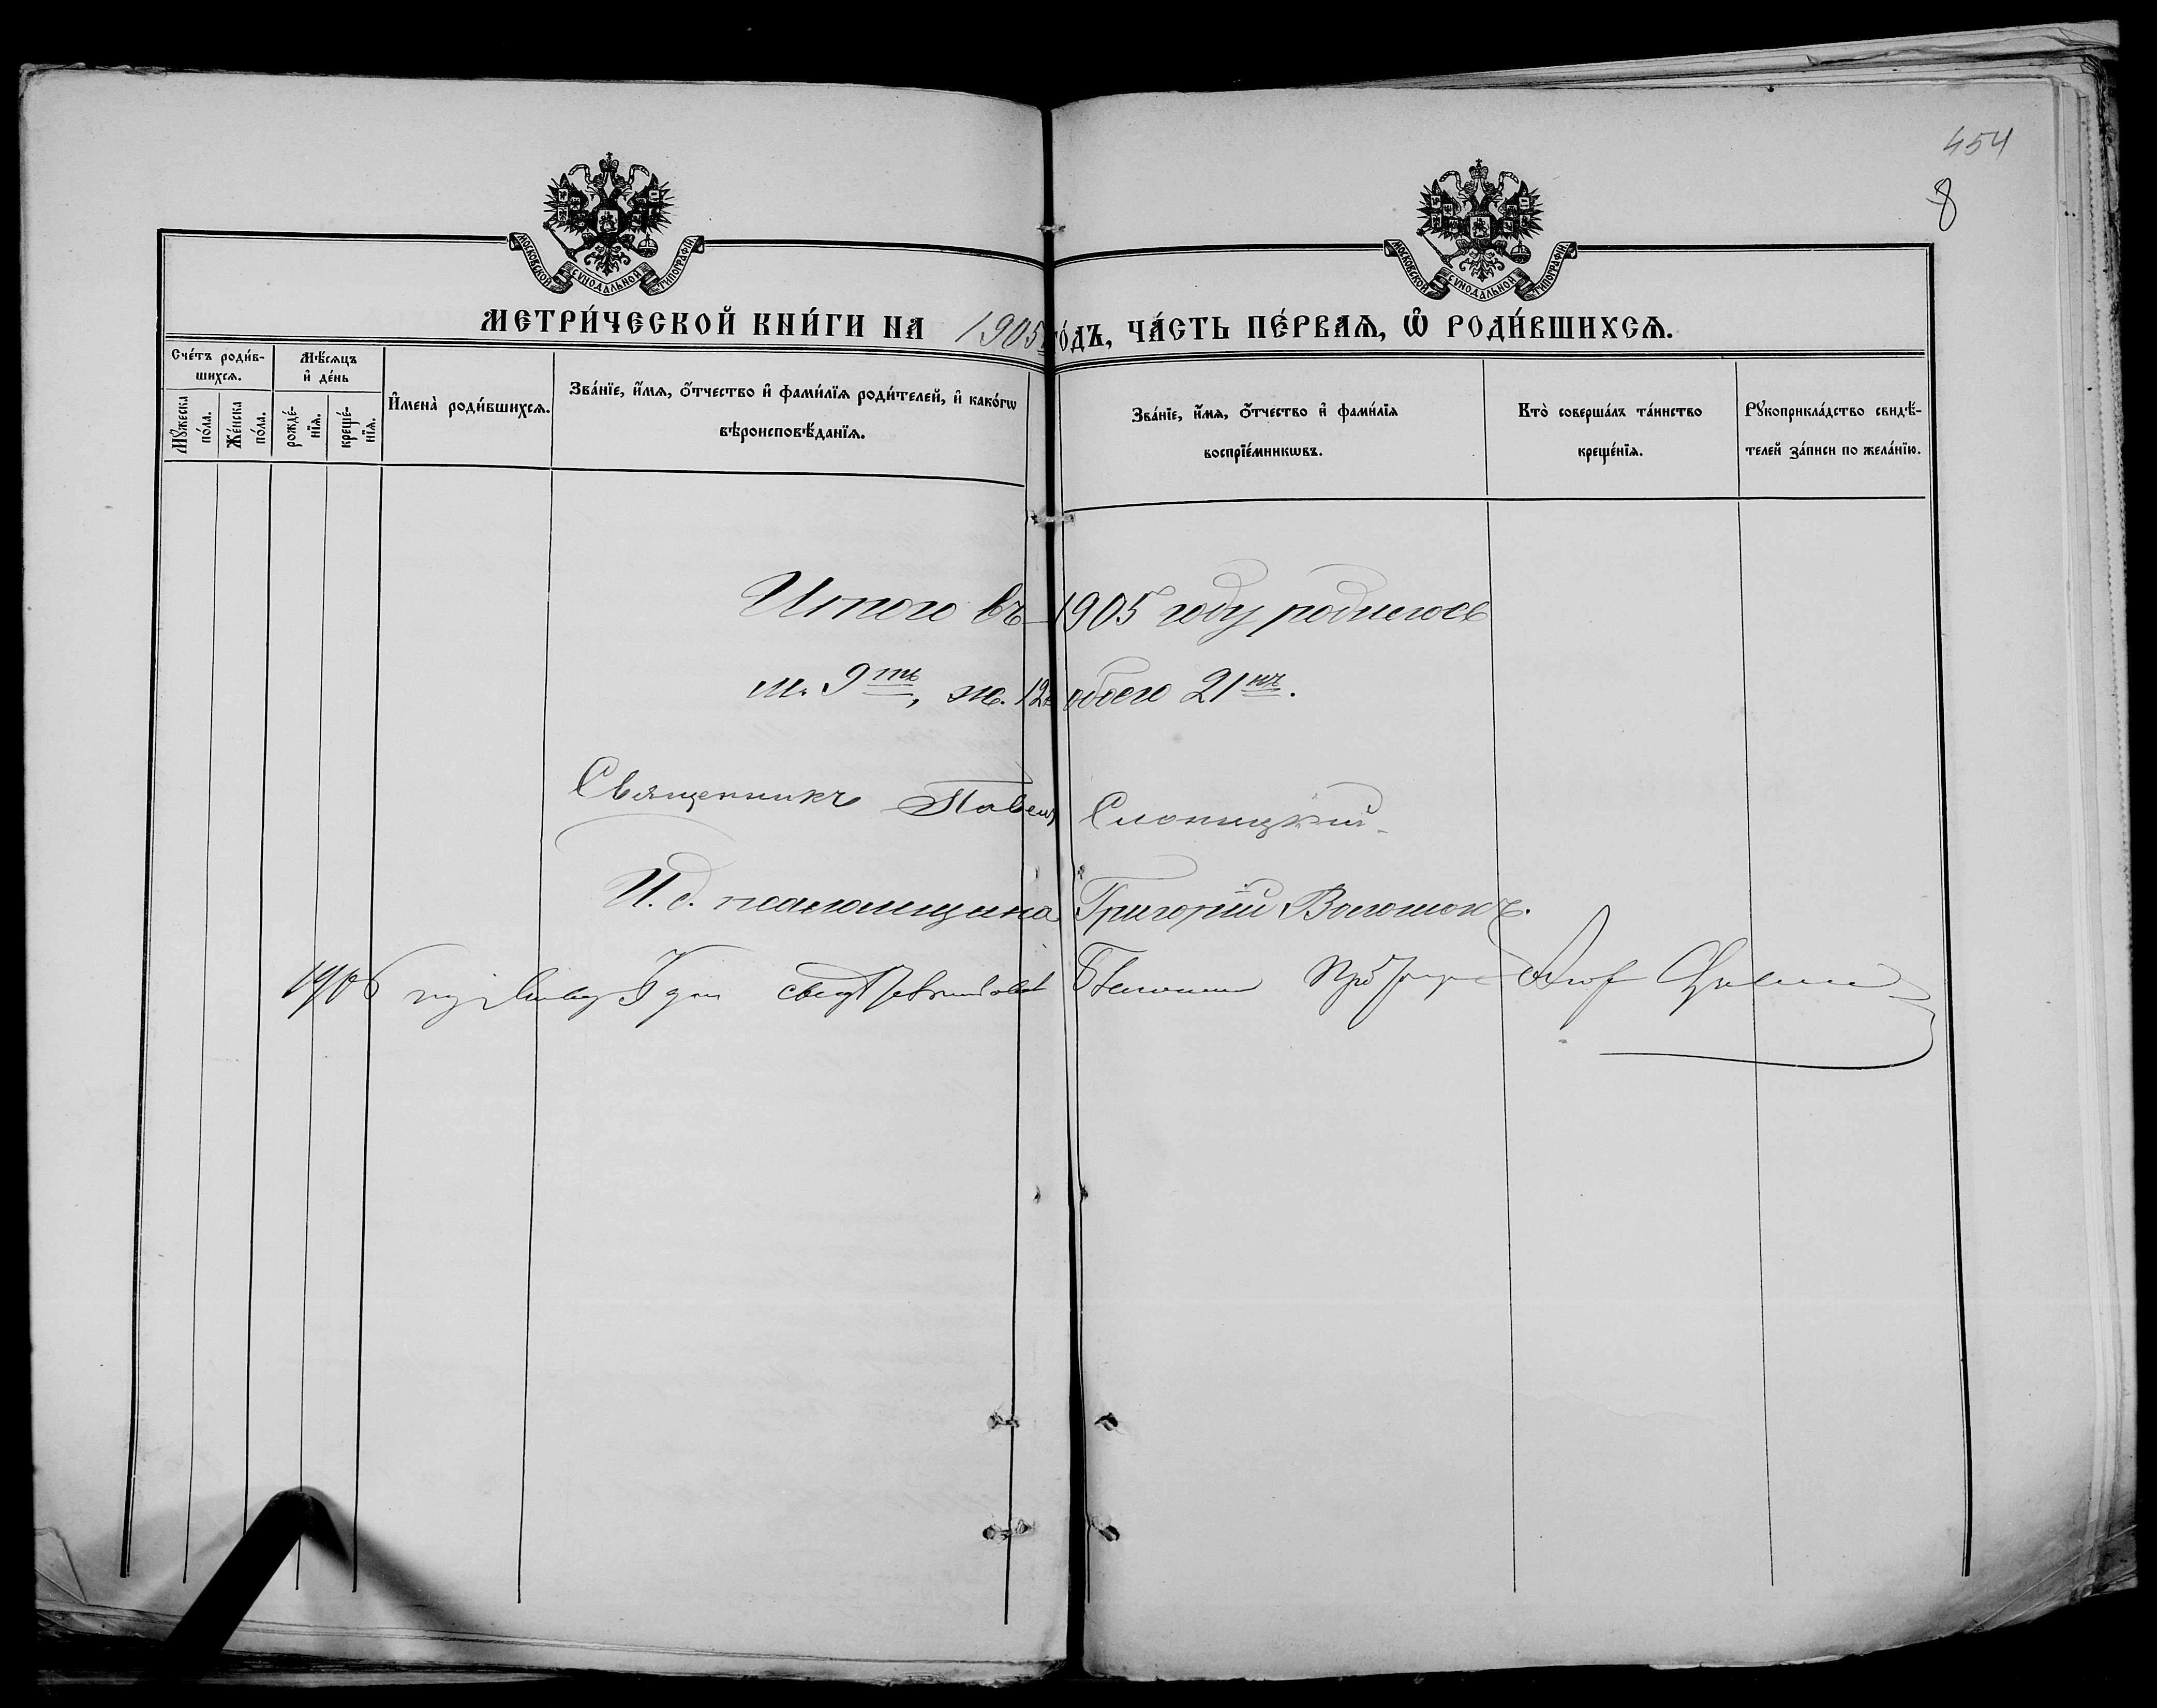 454
8
МОСКОВСКОЙ СѴНОДАЛЬНОЙ ТИПОГРАФІИ
МОСКОВСКОЙ СѴНОДАЛЬНОЙ ТИПОГРАФІИ
МЕТРИ́ЧЕСКОЙ КНИ́ГИ НА 1905 го́дъ, ЧА́СТЬ ПЕ́РВАѦ, Ѽ РОДИ́ВШИХСѦ.
Сче́тъ роди́в-
шихсѧ.
Мꙋ́жеска по́ла.
Же́нска по́ла.
Мѣ́сѧцъ
и҆ де́нь
рожде́-
нїѧ.
креще́-
нїѧ.
И҆мена̀ роди́вшихсѧ.
Зва́нїе, и҆́мѧ, ѻ҆́тчество и҆ фами́лїѧ роди́телей, и҆ како́гѡ
вѣроисповѣ́данїѧ.
Зва́нїе, и҆́мѧ, ѻ҆́тчество и҆ фами́лїѧ
воспрїе́мникѡвъ.
Кто̀ соверша́лъ та́инство
креще́нїѧ.
Рꙋкоприкла́дство свидѣ́-
телей за́писи по жела́нїю.
Итого въ 1905 году родилось
м. 9ть, ж. 12 обоего 21нъ.
Священникъ Павелъ Слоницкій
И. д. псаломщика Григорій Волошокъ.
1906